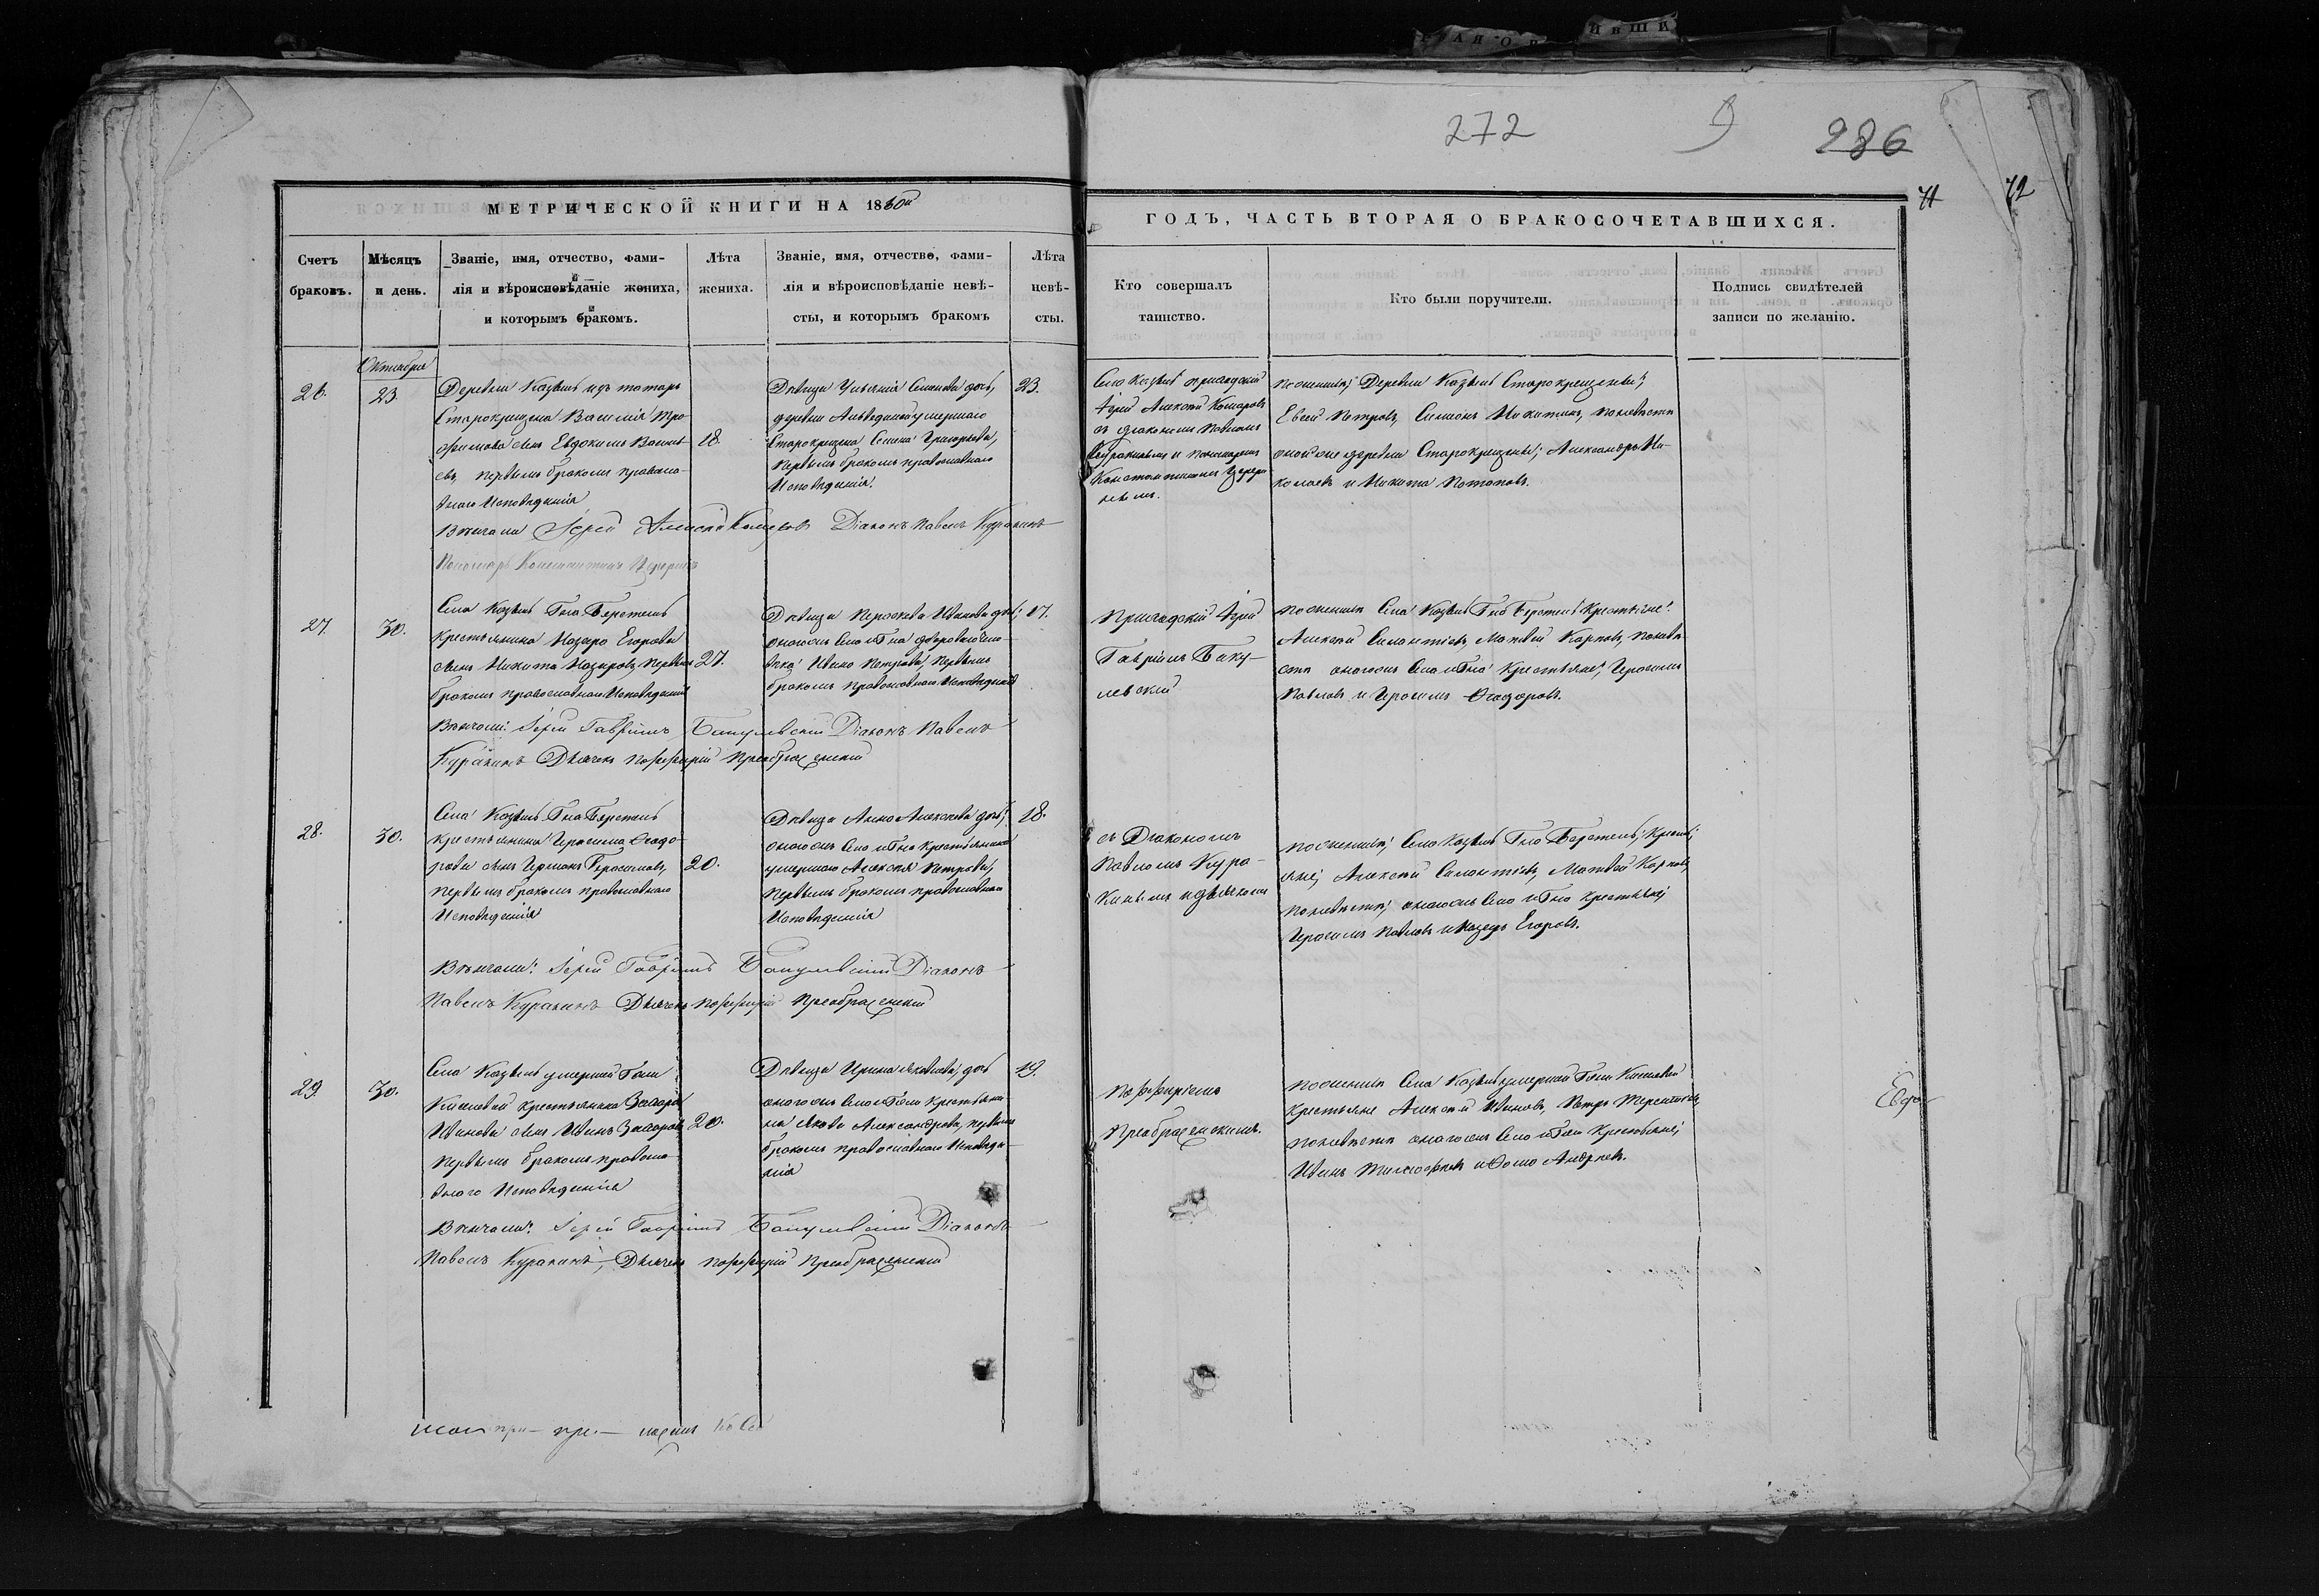 272 9 286
71 72
МЕТРИЧЕСКОЙ КНИГИ НА 1860й
ГОДЪ, ЧАСТЬ ВТОРАЯ О БРАКОСОЧЕТАВШИХСЯ.
Счетъ
браковъ.
Мѣсяцъ
и день.
Званіе, имя, отчество, фами-
лія и вѣроисповѣданіе жениха,
и которымъ бракомъ.
Лѣта
жениха.
Званіе, имя, отчество, фами-
лія и вѣроисповѣданіе невѣ-
сты, и которымъ бракомъ
Лѣта
невѣ-
сты.
Кто совершалъ
таинство.
Кто были поручители.
Подпись свидѣтелей
записи по желанію.
26.
Октября
23
Деревни Казыль изъ татаръ
Старокрещена Василія Тро-
фимова сынъ Евдокимъ Василь-
евъ, первымъ бракомъ правосла-
внаго Исповѣданія
18.
Дѣвица Ульянія Семенова дочь,
деревни умершаго
Старокрещена Семена Григорьева,
первымъ бракомъ православнаго
Исповѣданія.
23.
Села приходскій
Іерей Алексѣй
съ діакономъ Павломъ
Куракинымъ и пономаремъ
Константиномъ
по женихѣ; Деревни Старокрещены;
Евсей Петровъ, Симеонъ Никитинъ, по невѣстѣ
оной же деревни Старокрещены; Александръ Ни-
колаевъ и Никита Потаповъ.
Вѣнчали Іерей Алексѣй Діаконъ Павелъ Куракинъ
Пономарь Константинъ
27.
30.
Села Гна
крестьянина Назара Егорова
сынъ Никита Назаровъ, первымъ
бракомъ православнаго Исповѣданія
27.
Дѣвица Параскева Иванова дочь;
онаго же Села и Гна двороваго чело-
вѣка Ивана Петрова, первымъ
бракомъ православнаго Исповѣданія
17.
Приходскій Іерей
Гавріилъ Баку-
левскій
по женихѣ Села Гна крестьяне:
Алексѣй Матвей Карповъ, по невѣ-
стѣ онаго же Села и Гна Крестьяне; Герасимъ
Павловъ и Герасимъ Ѳеодоровъ.
Вѣнчали: Іерей Гавріилъ Бакулевскій Діаконъ Павелъ
Куракинъ Дьячекъ Порфирій Преображенскій
28.
30.
Села Гна
крестьянина Герасима Ѳеодо-
рова сынъ Герасимовъ,
первымъ бракомъ православнаго
Исповѣданія
20.
Дѣвица Анна Алексѣева дочь,
онаго же Села и Гна крестьянина
умершаго Алексѣя Петрова,
первымъ бракомъ православнаго
Исповѣданія
18.
съ Діакономъ
Павломъ Кура-
кинымъ и дьячкомъ
по женихѣ; Села Гна Крестья-
яне; Алексѣй Матвей Карповъ,
по невѣстѣ; онаго же Села и Гна крестьяне;
Герасимъ Павловъ и Назаръ Егоровъ.
Вѣнчали: Іерей Гавріилъ Бакулевскій Діаконъ
Павелъ Куракинъ Дьячекъ Порфирій Преображенскій
29.
30.
Села умершей Гжи
крестьянина
Иванова сынъ Иванъ
первымъ бракомъ правосла-
внаго Исповѣданія
20.
Дѣвица Ирина Яковлева, дочь
онаго же Села и Гжи крестьяни-
на Якова Александрова, первымъ
бракомъ православнаго Исповѣда-
нія
19.
Порфиріемъ
Преображенскимъ.
по женихѣ Села умершей Гжи
крестьяне Алексѣй Ивановъ, Петръ Терентьевъ,
по невѣстѣ онаго же Села и Гжи Крестьяне;
Иванъ Тимофеевъ и Ѳома Андреевъ.
Вѣнчали: Іерей Гавріилъ Бакулевскій Діаконъ
Павелъ Куракинъ, Дьячекъ Порфирій Преображенскій